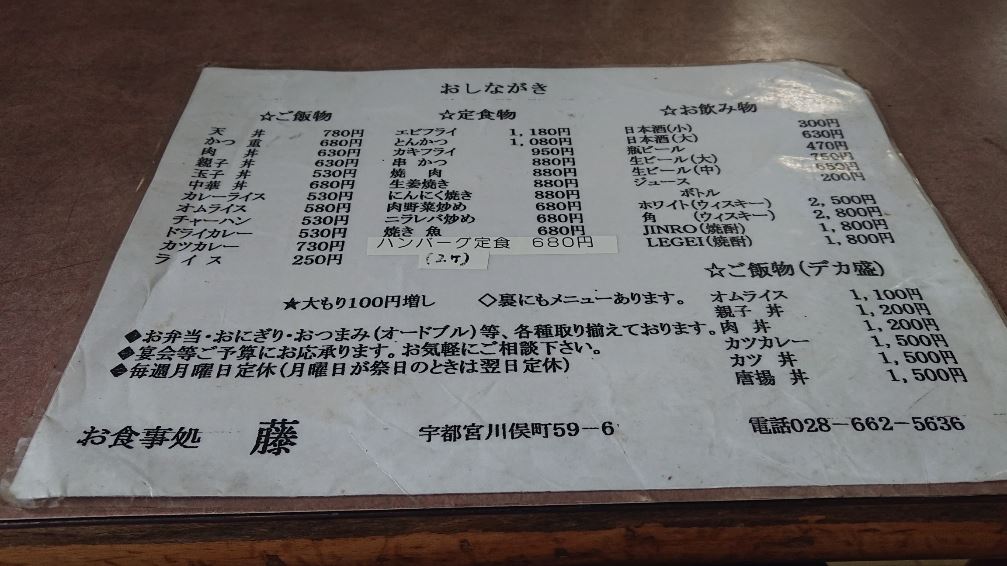 おしながき
☆ご飯物
天丼 780円
かつ重 680円
肉丼 630円
親子丼 630円
玉子丼 530円
中華丼 680円
カレーライス 530円
オムライス 580円
チャーハン 530円
ドライカレー 530円
カツカレー 730円
ライス 250円
☆定食物
エビフライ 1,180円
とんかつ 1,080円
カキフライ 950円
串かつ 880円
焼肉 880円
生姜焼き 880円
にんにく焼き 880円
肉野菜炒め 680円
ニラレバ炒め 680円
焼き魚 680円
ハンバーグ定食 680円
(2ケ)
☆お飲み物
日本酒(小) 300円
日本酒(大) 630円
瓶ビール 470円
生ビール(大) 750円
生ビール(中) 650円
ジュース 200円
ボトル
ホワイト(ウィスキー) 2,500円
角 (ウィスキー) 2,800円
JINRO(焼酎) 1,800円
LEGEI(焼酎) 1,800円
☆ご飯物(デカ盛)
オムライス 1,100円
親子丼 1,200円
肉丼 1,200円
カツカレー 1,500円
カツ丼 1,500円
唐揚丼 1,500円
★大もり100円増し ◇裏にもメニューあります。
◆お弁当・おにぎり・おつまみ(オードブル)等、各種取り揃えております。
◆宴会等ご予算にお応承ります。お気軽にご相談下さい。
◆毎週月曜日定休(月曜日が祭日のときは翌日定休)
お食事処 藤 宇都宮川俣町59-6 電話028-662-5636